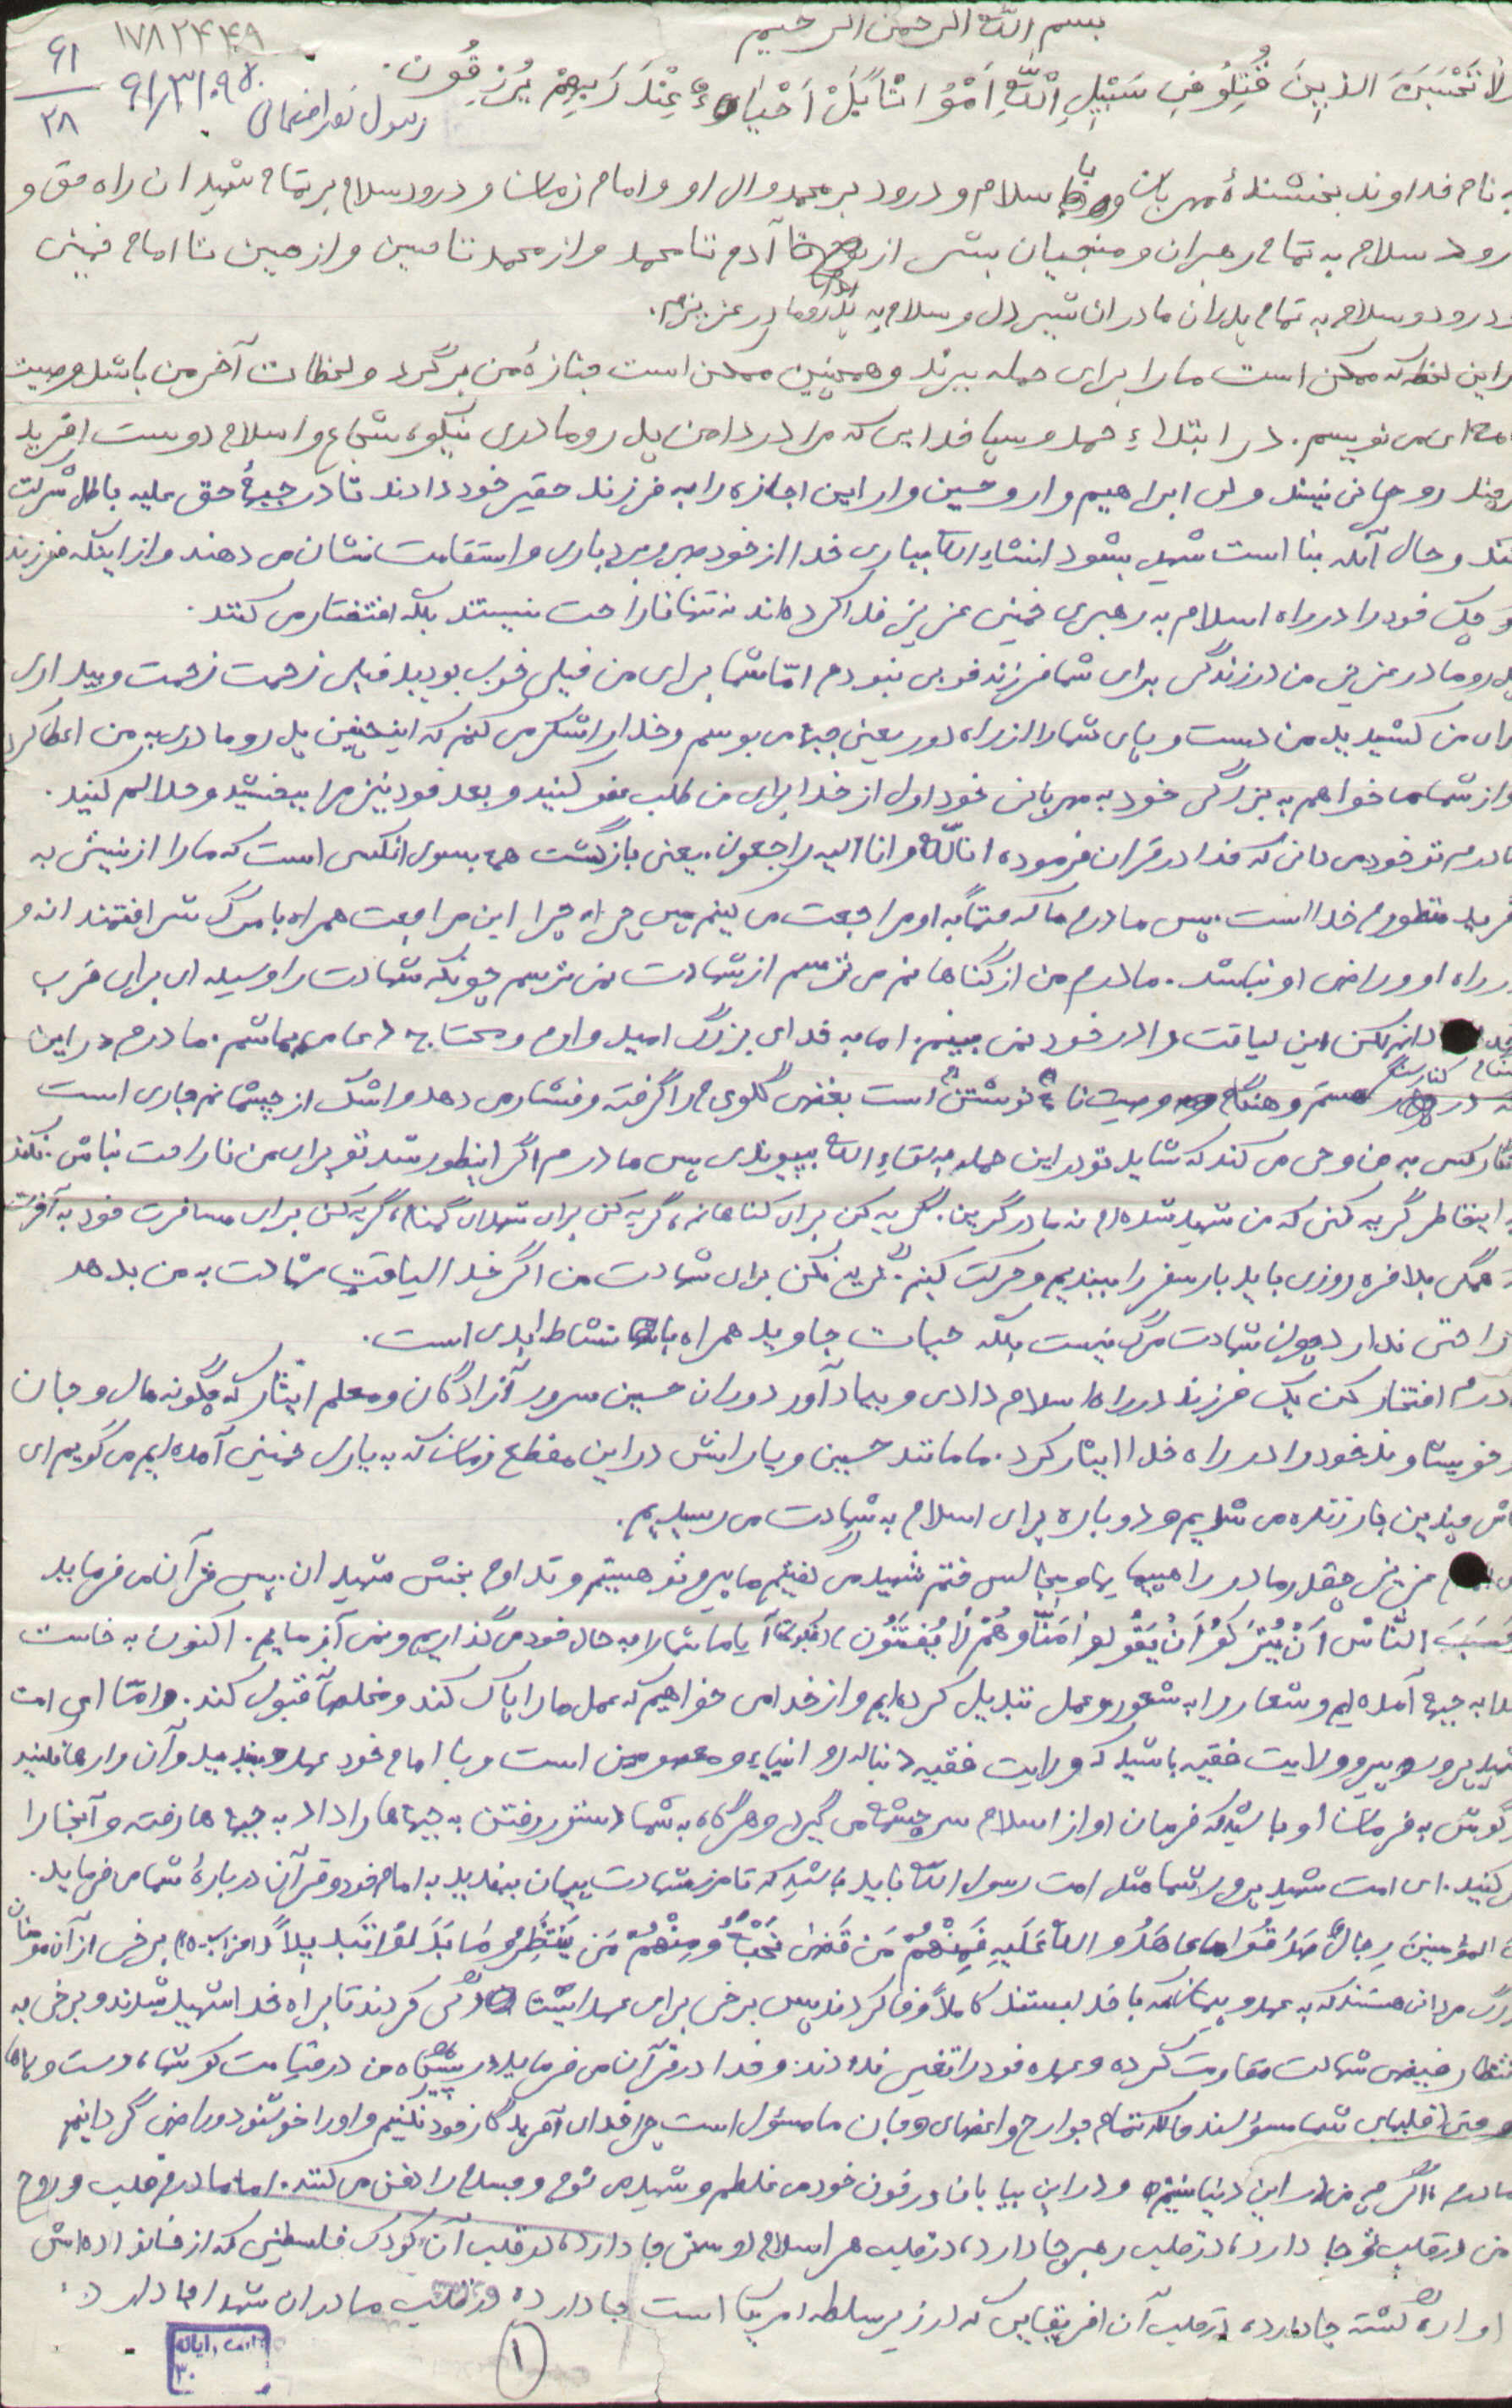 بسم الله الرحمن الرحیم
۱۷۸۲۴۴۹
۶۱
۲۸
لا تَحْسَبَنَ الذینَ قُتِلُو فی سَبیلِ اللّهِ اَمْوُاتاً بَلْ اَحْیاءٌ عِنْدَ رَبِهِمْ یُرْزِقُون.
رسول
نام خداوند بخشندهٔ مهربان و با سلام و درود بر محمد و ال او و امام زمان و درود سلام بر تمام شهیدان راه حق و
رود سلام به تمام رهبران و منجیان بشر از آدم تا محمد و از محمد تا حسین و از حسین تا امام خمینی
درود و سلام به تمام پدران مادران شیر دل و سلام به پدر و مادر عزیزم.
این لحظه که ممکن است ما را برای حمله ببرند و همچنین ممکن است جنازهٔ من برگرد و لحظات آخر من باشد وصیت
ای می نویسم. در ابتداء حمد و سپا خدایی که مرا در دامن پدر و مادری نیکو، شجاع و اسلام دوست افرید
روحانی نیند ولی ابراهیم وار و حسین وار این اجازه را به فرزند حقیر خود دادند تا در جبههٔ حق علیه باطل شرکت
کند و حال آنکه بنا است شهید بشود انشاءالله بیاری خدا از خود صبر و بردباری و استقامت نشان می دهند و از اینکه فرزند
کوچک خود را در راه اسلام به رهبری خمینی عزیز فدا کرده اند نه تنها ناراحت نیستند بلکه افتختار می کنند.
پدر و مادر عزیز من در زندگی برای شما فرزند خوبی نبودم امّا شما برای من خیلی خوب بودید خیلی زحمت زحمت و بیداری
برای من کشیدید من دست و پای شما را از راه دور یعنی جبهه می بوسم و خدا را شکر می کنم که اینچنین پدر و مادری به من اعطا کرد
و از شما می خواهم به بزرگی خود به مهربانی خود اول از خدا برای من طلب عفو کنید و بعد خود نیز مرا ببخشید و حلالم کنید.
مادرم تو خود می دانی که خدا در قران فرموده انا للّه و انا الیه راجعون. یعنی بازگشت همه بسوی انکسی است که ما را از نیش به
منظورم خدا است. پس مادرم ما که حتماً به او مراجعت می کینم پس چرا چرا این مراجعت همراه با مرگ شرافتمندانه و
در راه او و راضی او نباشد. مادرم من از گناهانم می ترسم از شهادت نمی ترسم چونکه شهادت را وسیله ای برای قرب
دانم لکن این لیاقت را در خود نمی بینم. اما به خدای بزرگ امید وارم و محتاج دعا می باشم. مادرم در این
در کنار سنگر هستم و هنگام وصیت نامه نوشتن است بغض گلوی مرا گرفته و فشار می دهد و اشک از چشمانم جاری است
انگار کسی به من وحی می کند که شاید تو در این حمله به لقاءالله بپیوندی پس مادرم اگر اینطور شد تو برای من ناراحت نباش. نکند
اینخاطر گریه کنی که من شهید شده ام نه مادر گرین. گریه کن برای گناهانم، گریه کن برای شهدای گمنام، گریه کن برای مسافرت خود به آخرت
همگی بلاخره روزی باید بار سفر را ببندیم و حرکت کینم. گریه نکن برای شهادت من اگر خدا لیاقت شهادت به من بدهد
ناراحتی ندارد چون شهادت مرگ نیست بلکه حیات جاوید همراه با نشاط ابدی است.
مادرم افتخار کن یک فرزند در راه اسلام دادی و بیاد آور دوران حسین سرور آزادگان و معلم ایثار که چگونه مال و جان
و خویشاوند خود را در راه خدا ایثار کرد. ما مانند حسین و یارانش در این مقطع زمان که به یاری خمینی آمده ایم می گویم ای
کاش چندین بار زنده می شدیم و دوباره برای اسلام به شهادت می رسیدیم.
عزیز من چقدر ما در راهپیمایها و مجالس ختم شهید می گفتیم ما پیرو تو هستیم و تداوم بخش شهیدان. پس قرآن می فرماید
حَسِبَ النّاسُ اَنْ یُتْرَکوُ اَنْ یَقُولوُ امَنّاوَ هُمْ لا یُفتَنُون (عنکبوت) آیا ما شما را به حال خود می گذاریم و نمی آزماییم. اکنون به خاست
خدا به جبهه آمده ایم و شعار را به شعور و عمل تبدیل کرده ایم و از خدا می خواهیم که عمل ما را پاک کند و مخلصاً قبول کند. و امّا ای امت
شهید پرور پیرو ولایت فقیه باشید که ولایت فقیه دنباله رو انبیاء و معصومین است و با امام خود عهد ببندید و آن را رها نکنید
گوش به فرمان او باشید که فرمان او از اسلام سر چشمه می گیرد و هر گاه به شما دستور رفتن به جبهه ها را داد به جبهه ها رفته و آنجا را
کنید. ای امت شهید پرور شما مثل امت رسول الله باید باشید که تا مرز شهادت پیمان ببندید با امام خود و قرآن دربارهٔ شما می فرماید.
المؤمینَ رِجالٌ صَدَقُوا ما عاهَدُو الله عَلَیهِ فَمِنْهُمْ مَن قَضی نَحْبَهُ وَ مِنْهُمْ مَن یَنْتَظِرُ وَ مَا بَدَلوُا تَبْدیلاً (احزاب) برخی از آن مومنان
بزرگ مردانی هستند که به عهد و پیمانیکه با خدا بستند کاملاً وفا کردند پس برخی برای عهد ایستادگی کردند تا براه خدا شهید شدند و برخی به
انتظار فیض شهادت مقاومت کرده و عهد خود را تغیر ندادند و خدا در قرآن می فرماید در پیشگاه من در قیامت گوشها، دست و پاها
و حتی قلبهای شما مسؤلند مالک تمام جوارح و اعضای و جان ما مسؤل است چرا خدای آفریدگار خود نکنیم و او را خوشنود و راضی گردانیم
مادرم اگر چه من در این دنیا نیستم و در این بیابان در خون خود می غلطم و شهید می شوم و جسدم را دفن می کنند. اما مادرم قلب و روح
من در قلب تو جا دارد، در قلب رهبر جا دارد، در قلب هر اسلام دوستی جا دارد، در قلب آن کودک فلسطینی که از خانواده اش
اواره گشته جا دارد، در قلب آن افریقایی که در زیر سلطه امریکا است جا دارد و در قلب مادران شهدا جا دارد.
۱
۳۰